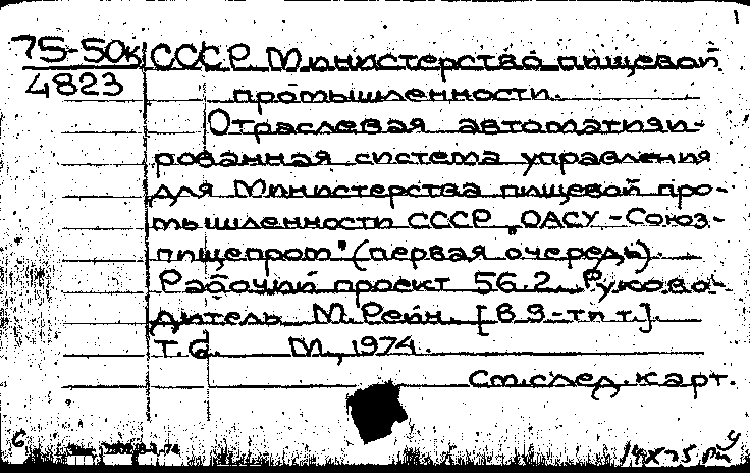 1
75-50к СССР Министерство пищевой
4823
промышленности.
Отраслевая автоматизи-
рованная система управления
для Министерства пищевой про-
мышленности СССР "ОАСУ-Союз-
пищепром" (первая очередь).
Рабочий проект 56.2. Руково-
дитель М. Рейн. [В 9-ти т.].
Т.6. М., 1974.
См. след. карт.
6
14 X 75